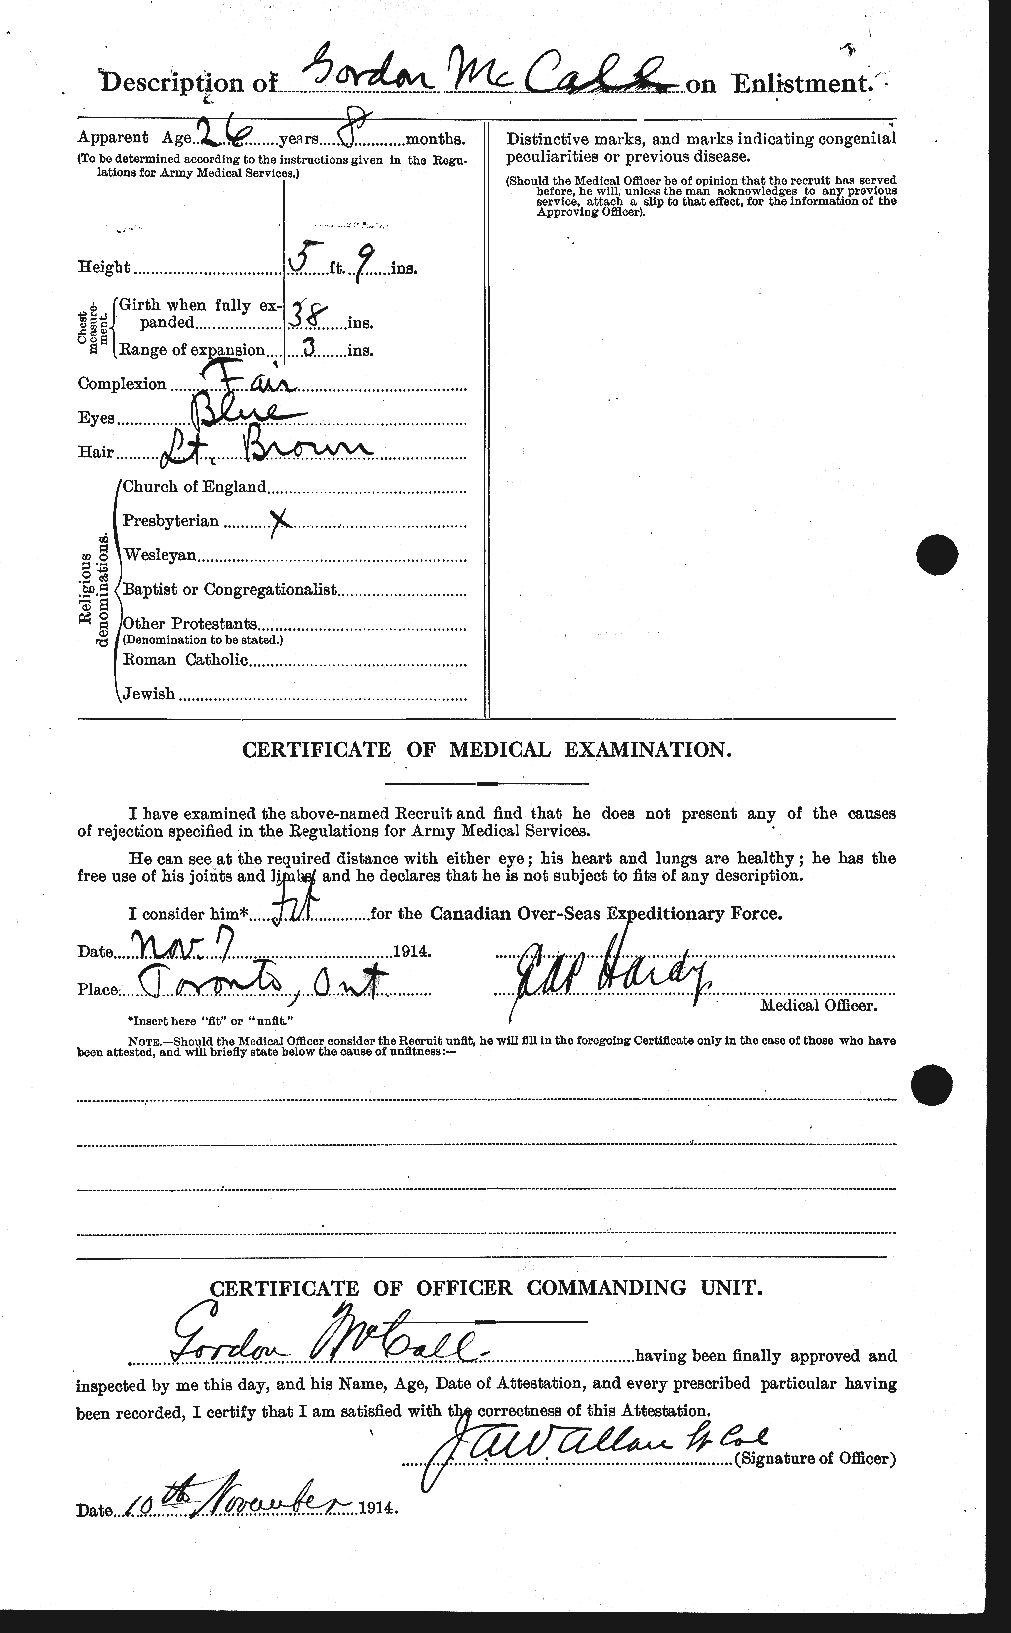 Description of Gordon McCall on Enlistment.
Apparent Age 26 years 8 months.
(To be determined according to the instructions given in the Regu-
lations for Army Medical Services.)
Height 5 ft. 9 ins.
Chest measure-ment.
Girth when fully ex-
panded 38 ins.
Range of expansion 3 ins.
Complexion Fair
Eyes Blue
Hair Lt. Brown
Religious denominations.
Church of England
Presbyterian X
Wesleyan
Baptist or Congregationalist
Other Protestants
(Denomination to be stated.)
Roman Catholic
Jewish
Distinctive marks, and marks indicating congenital
peculiarities or previous disease.
(Should the Medical Officer be of opinion that the recruit has served
before, he will, unless the man acknowledges to any previous
service, attach a slip to that effect, for the information of the
Approving Officer).
CERTIFICATE OF MEDICAL EXAMINATION.
I have examined the above-named Recruit and find that he does not present any of the causes
of rejection specified in the Regulations for Army Medical Services.
He can see at the required distance with either eye; his heart and lungs are healthy; he has the
free use of his joints and limbs, and he declares that he is not subject to fits of any description.
I consider him* fit for the Canadian Over-Seas Expeditionary Force.
Date Nov. 7 1914.
Place Toronto, Ont
Hardy
Medical Officer.
*Insert here "fit" or "unfit."
NOTE.—Should the Medical Officer consider the Recruit unfit, he will fill in the foregoing Certificate only in the case of those who have
been attested, and will briefly state below the cause of unfitness:—
CERTIFICATE OF OFFICER COMMANDING UNIT.
Gordon McCall having been finally approved and
inspected by me this day, and his Name, Age, Date of Attestation, and every prescribed particular having
been recorded, I certify that I am satisfied with the correctness of this Attestation.
J A W Allan Lt Col
(Signature of Officer)
Date 10th November 1914.